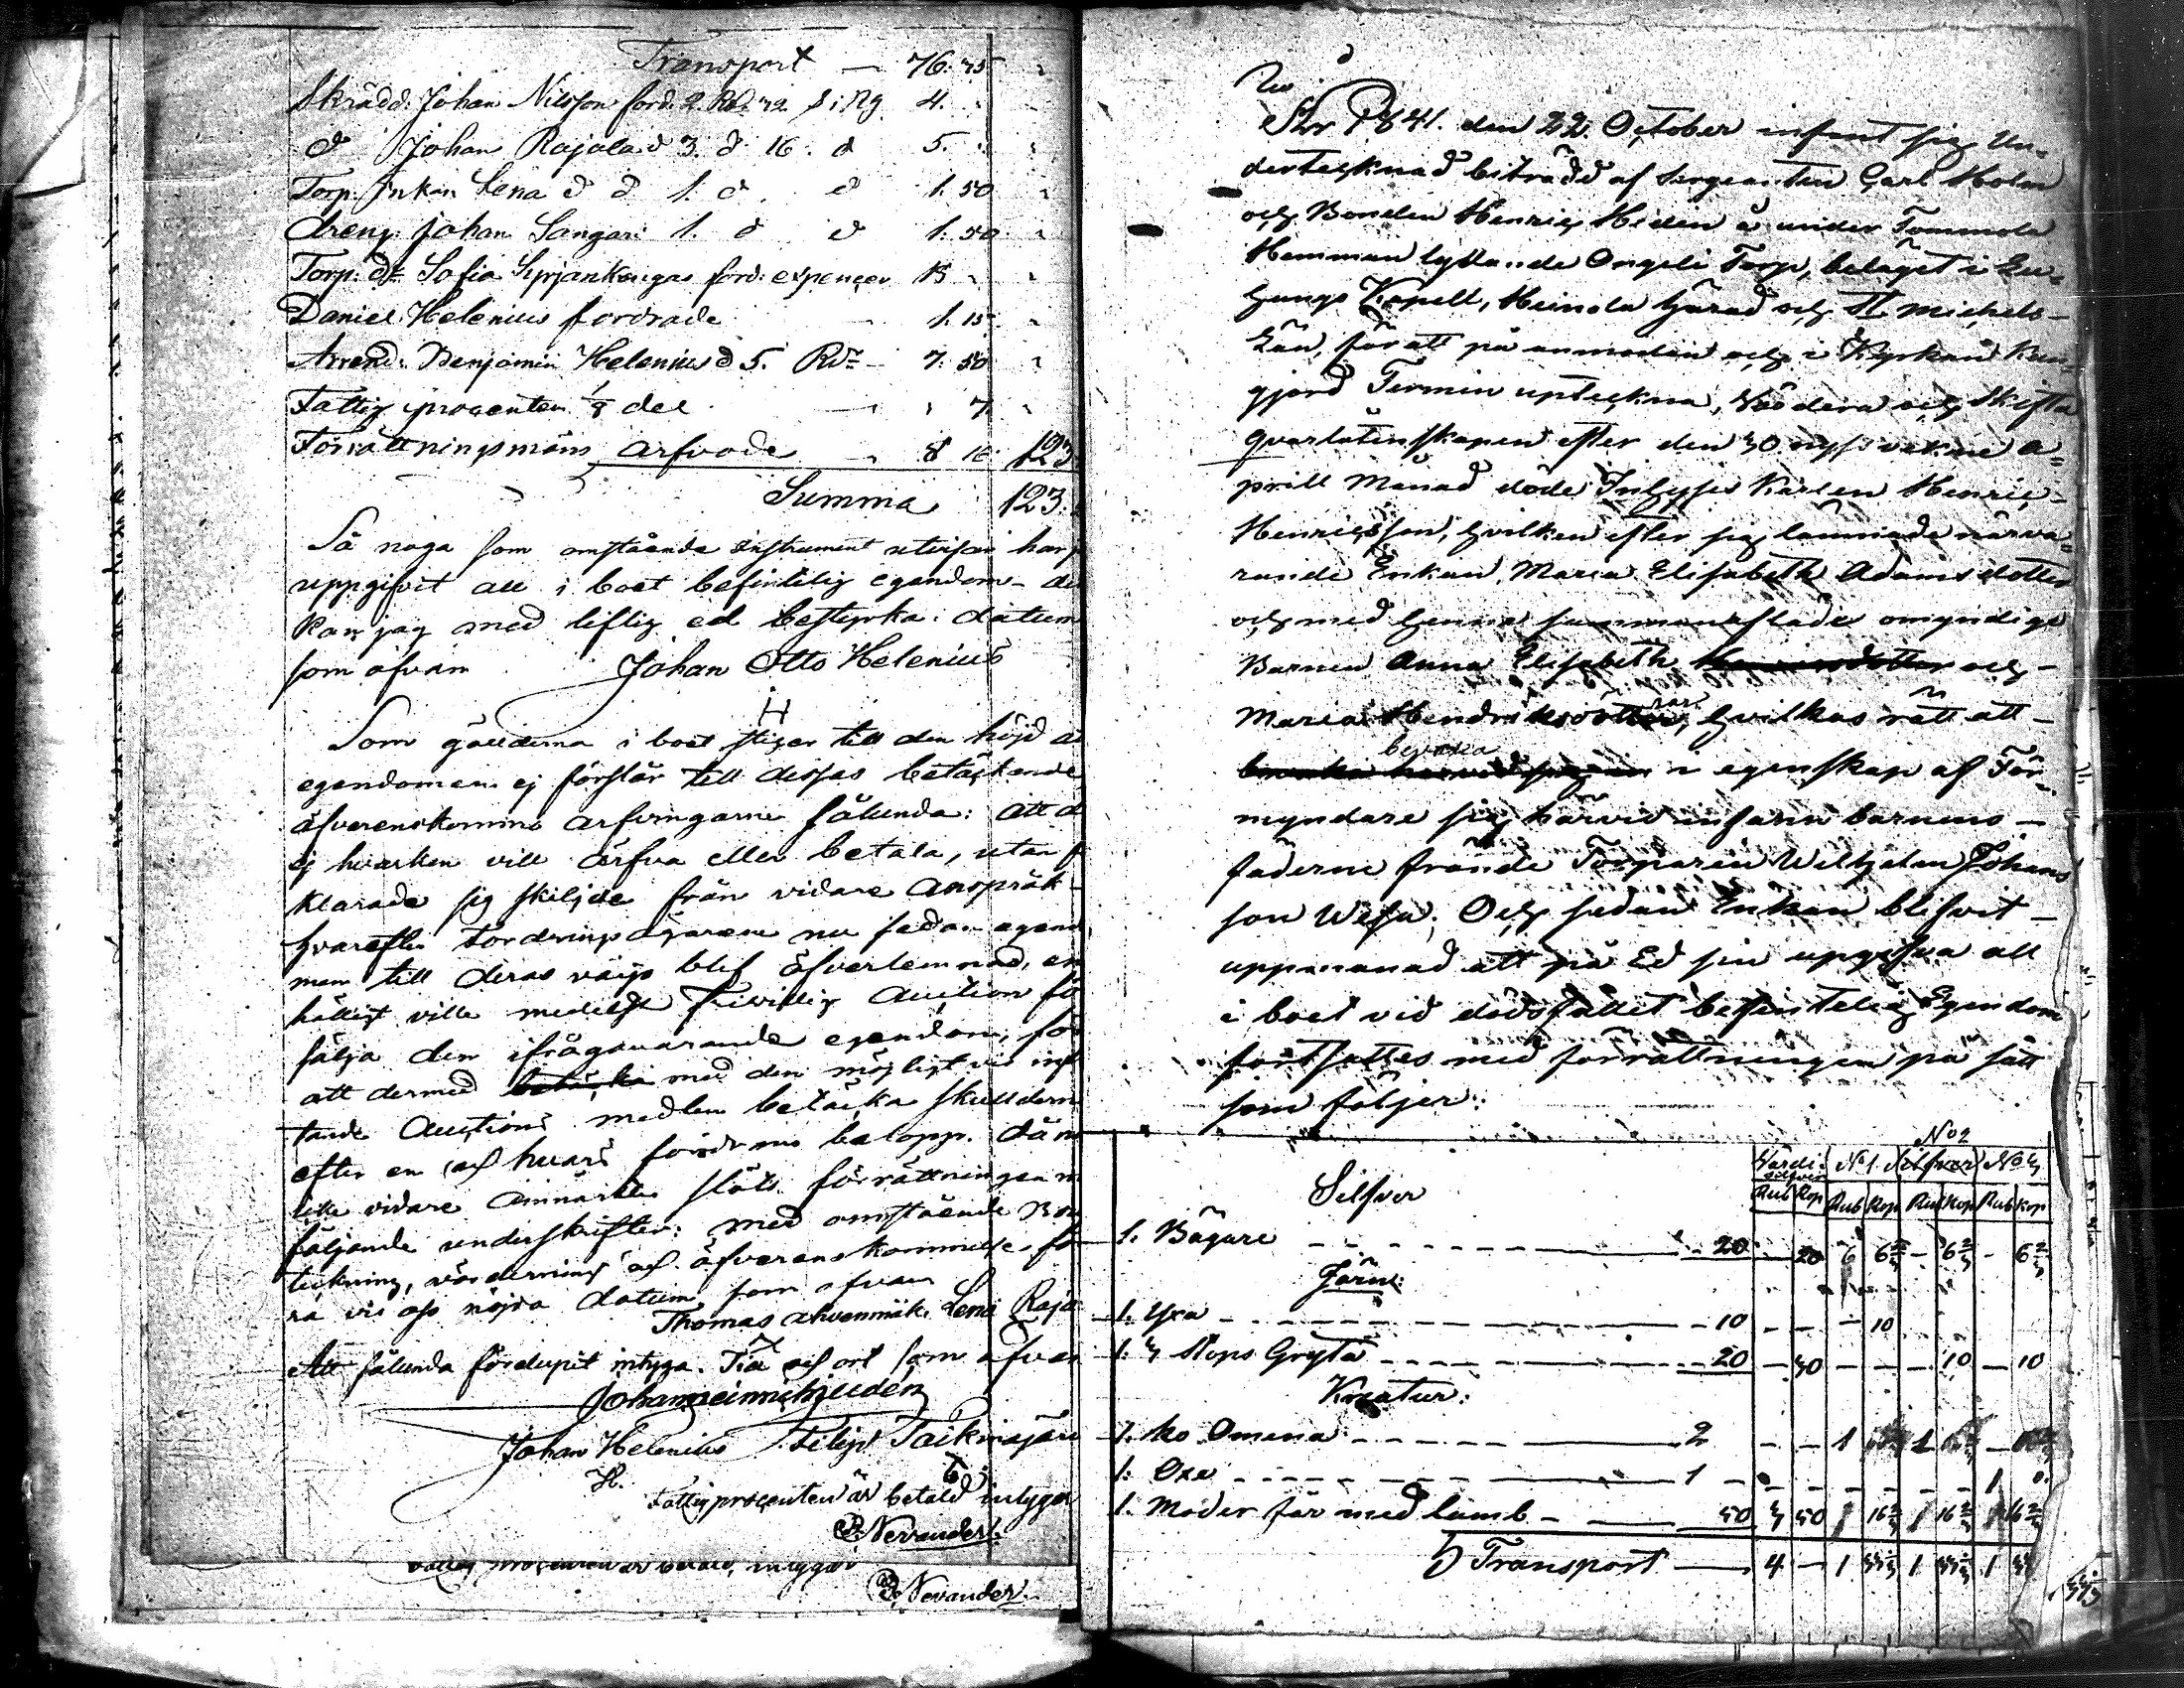 Transport — 76. 75
Skrädd. Johan Nilsson ford. 2. Rd. 72 s i Rg 4.
d Johan Rajala d 3. d 16. d 5.
Torp. Enkan Lena d d 1. d. d 1. 50
dreng. Johan Sangari 1. d d 1. 50
Torp. dr Sofia Syrjänkangas ford. expenser
Daniel Helenius fordrade — 1. 15
Arrend. Benjamin Helenius d 5. Rdr — 7. 50
Fattig procenten 1/8 del — 7.
Förrättningsmäns arfvode — 8 16 123
Summa 123.
Så noga som omstående instrument utvisar har j
uppgifvit all i boet befintelig egendom – de
kan jag med liflig ed bestyrka. datum
som ofvan Johan Otto Helenius
H
Som gälderna i boet stiger till den höjd a
egendomen ej förslår till dessas betäckande
öfverenskommo arfvingarne sålunda: att d
ej hvarken vill ärfva eller betala, utan f
klarade sig skiljde från vidare anspråk –
hvarefter fordringsägarene nu sedan egend
men till deras värjo blef öfverlemnad, en
hälligt ville medelst frivillig Auction fö
sälja den ifrågavarande egendom, för
att dermed betäcka med den möjligtvis infl
tande Auctions medlen betäcka skulderna
efter en och hvars fordrans belopp. Då n
icke vidare anmärktes slöts förrättningen m
följande underskrifter: med omstående Bou
teckning, värdering och öfverenskommelse för
ra vi oss nöjda datum som ofvan
Thomas Ahvenmäki Lena Raja
Att sålunda förelupit intyga. Tid och ort som ofvan
Johan Helenius Filip Taikinajärv
H.
Fattigprocenten är betald intygar
Nervander.
Fattig procenten är betald, intygar
Nervander.
År 1841. den 22. October infant sig Un-
dertecknad biträdd af Sergeanten Carl Holm
och Bonden Henric Heden å under Tommola
Hemman lydande Ongeli Torp, belaget i
Kapell, Heinola härad och St. Michels-
Län, för att på anmodan och i Kyrkan Kun-
gjord Termin upteckna, Värdera och Skifta
qvarlåtenskapen efter den 30. nyss vekne A-
prill Månad döde Inhyses Karlen Henric
Henricsson, hvilken efter sig lämnade närva-
rande Enkan Maria Elisabeth Adamsdotter
och med henne sammanaflade omyndige
Barnen Anna Elisabeth och –
Maria Hendriksdöttrar, hvilkas rätt att –
bevaka i egenskap af För-
myndare sig härvid infann barnens –
fäderne frände Torparen Wilhelm Johans
son Wesa; Och sedan Enkan blifvit –
uppmanad att på Ed sin uppgifva all
i boet vid dödsfallet befintelig Egendom
fortsattes med förrättningen på sätt
som följer:
No 2
Silfver Värdi. silfver No 1. Silfver No 3
Rub Kop Rub Kop Rub Kop Rub Kop
1. Bägare — 20 — 20 6 6 2/3 — 6 2/3 — 6 2/3
Järn:
1. Yxa — 10 — — — 10
1. 3 Stops Gryta — 20 — 30 — — — 10 — 10
Kreatur:
1. Ko Omena — 2 — — 1
1. Oxe — 1
1. Moder får med lamb — 50 3 50 16 2/3 16 2/3 16 2/3
Transport — 4 — 1 33 1/3 1 33 1/3 1 33